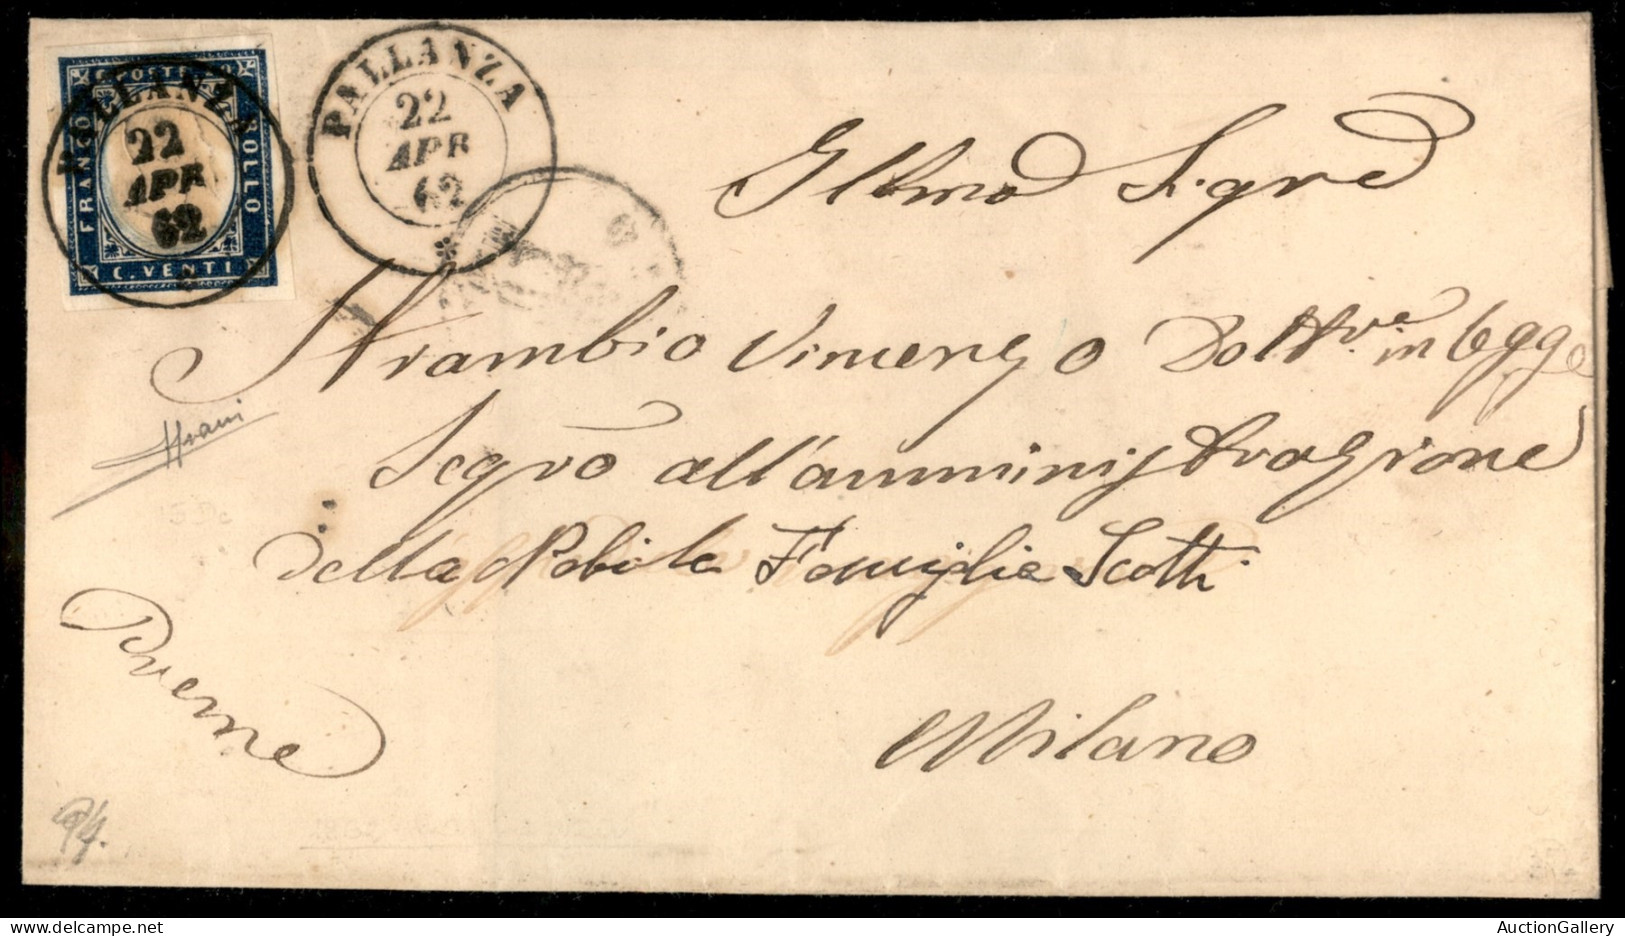 C. POSTE 20
FRANCO
BOLLO
C. VENTI
PALLANZA
22
APR
62
PALLANZA
22
APR
62
*
Illmo Sigre
Strambio Vincenzo Dott.re in legge
Segro all'amministrazione
della Nobile Famiglia Scotti
Milano
AuctionGallery